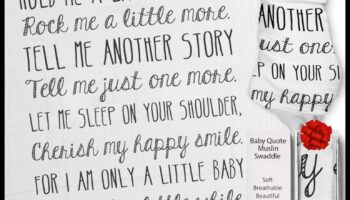 HOLD ME A
Rock me a little more.
TELL ME ANOTHER STORY
Tell me just one more.
LET ME SLEEP ON YOUR SHOULDER,
Cherish my happy smile.
FOR I AM ONLY A LITTLE BABY
ANOTHER
just one
SLEEP ON YOUR
my happy
Baby Quote
Muslin
Swaddle
Soft
Breathable
Beautiful